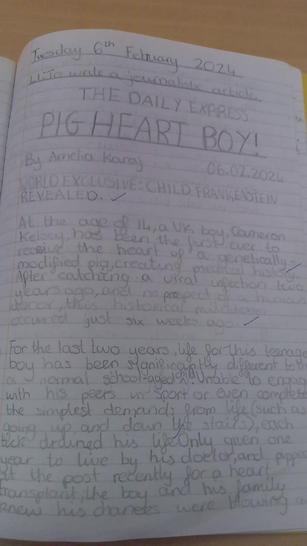 Tuesday 6th February 2024
LI: To write a journalistic article.
THE DAILY EXPRESS
PIG HEART BOY!
By Amelia
06.02.2024
WORLD EXCLUSIVE: CHILD FRANKENSTEIN
REVEALED.
At the age of 14, a UK boy, Cameron
Kelsey has been the first ever to
receive the heart of a genetically
modified pig, creating medical history.
After catching a viral infection two
years ago, and no prospect of a human
donor, this historical
occured just six weeks ago.
For the last two years, life for this teenage
boy has been significantly different to th
a normal school-aged Unable to engage
with his peers in sport or even complete
the simplest demands from life (such as
going up and down the stairs), each
tick drowned his life. Only given one
year to live by his doctor, and
at the post recently for a heart
transplant, the boy and his family
knew his chances were blowing